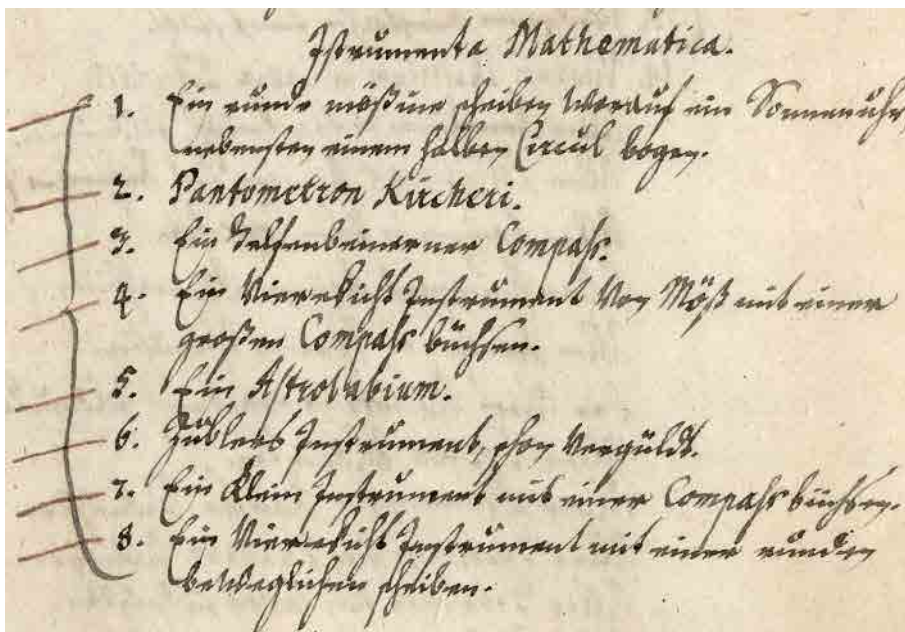 Istrumenta Mathematica.
1. Ein runde mößine scheiben worauf ein Sonnenuhr,
nebensten einem halben Circul bogen.
2. Pantometron Kircheri.
3. Ein Compass.
4. Ein Viereckicht Instrument Von Möß mit einer
großen Compass büchsen.
5. Ein Astrolabium.
6. Züblers Instrument, schon Vergüldt.
7. Ein Klein Instrument mit einer Compass büchsen.
8. Ein Viereckicht Instrument mit einer runden
beweglichen scheiben.